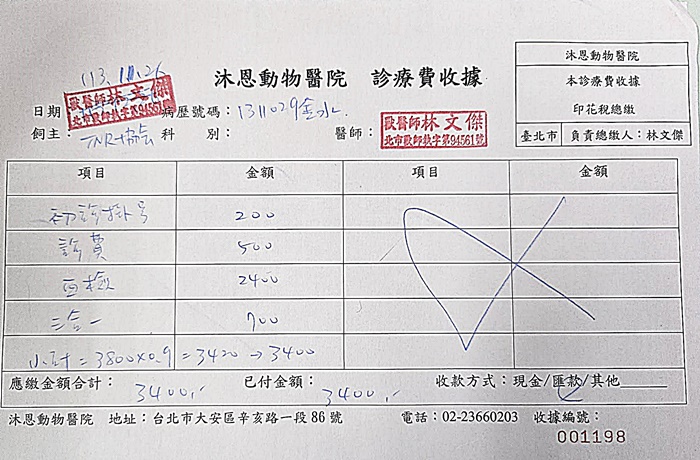 沐恩動物醫院 診療費收據
沐恩動物醫院
本診療費收據
印花稅總繳
臺北市 負責總繳人：林文傑
113.11.26
獸醫師林文傑
北市獸師執字第94561號
日期 病歷號碼：1311029金水
飼主：TNR協會 科 別： 醫師：
獸醫師林文傑
北市獸師執字第94561號
項目 金額 項目 金額
初診掛号 200
診費 500
血檢 2400
二合一 700
小計=3800×0.9=3420→3400
應繳金額合計：3400.- 已付金額：3400.- 收款方式：現金/匯款/其他
沐恩動物醫院 地址：台北市大安區辛亥路一段86號 電話：02-23660203 收據編號：
001198